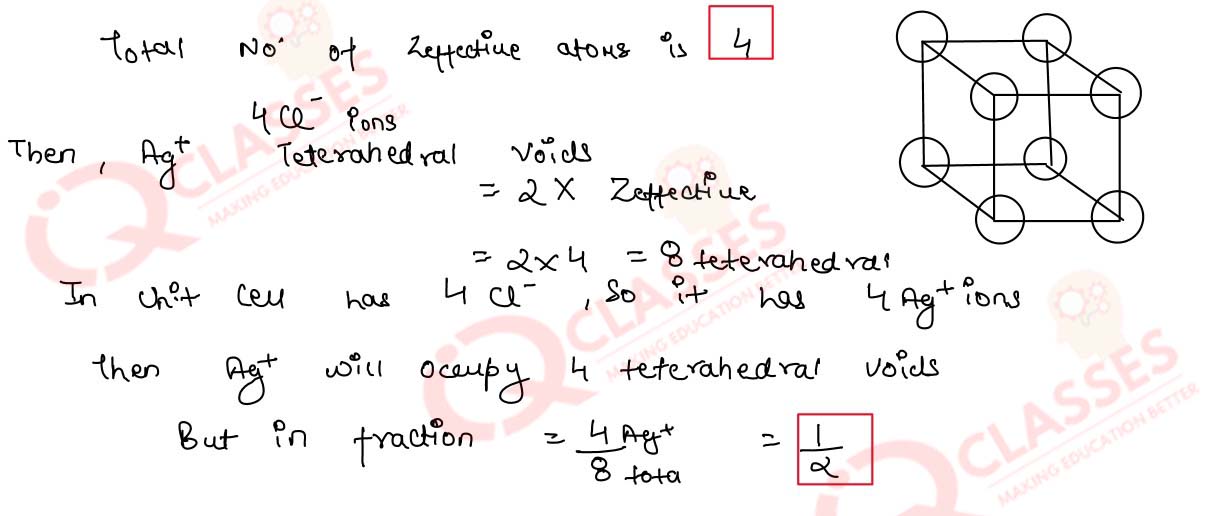 Total No. of Zeffective atoms is 4
4Cl⁻ ions
Then, Ag⁺ Teterahedral voids
= 2 X Zeffective
= 2x4 = 8 teterahedral
In unit cell has 4 Cl⁻, So it has 4 Ag⁺ ions
then Ag⁺ will occupy 4 teterahedral voids
But in fraction = 4 Ag⁺ / 8 tota = 1/2
IQ CLASSES
MAKING EDUCATION BETTER
IQ CLASSES
MAKING EDUCATION BETTER
IQ CLASSES
MAKING EDUCATION BETTER